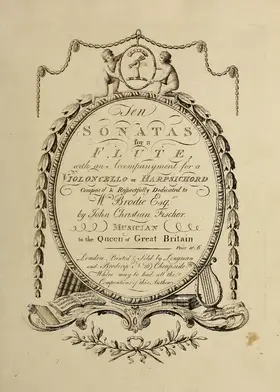 Ten
SONATAS
for a
FLUTE
with an Accompanyment for a
VIOLONCELLO or HARPSICHORD
Compos'd & Respectfully Dedicated to
Wm Brodie Esqr.
by John Christian Fischer.
MUSICIAN
to the Queen of Great Britain
Price
London Printed & Sold by Longman
and Broderip No 26 Cheapside
Where may be had all the
Compositions of this Author